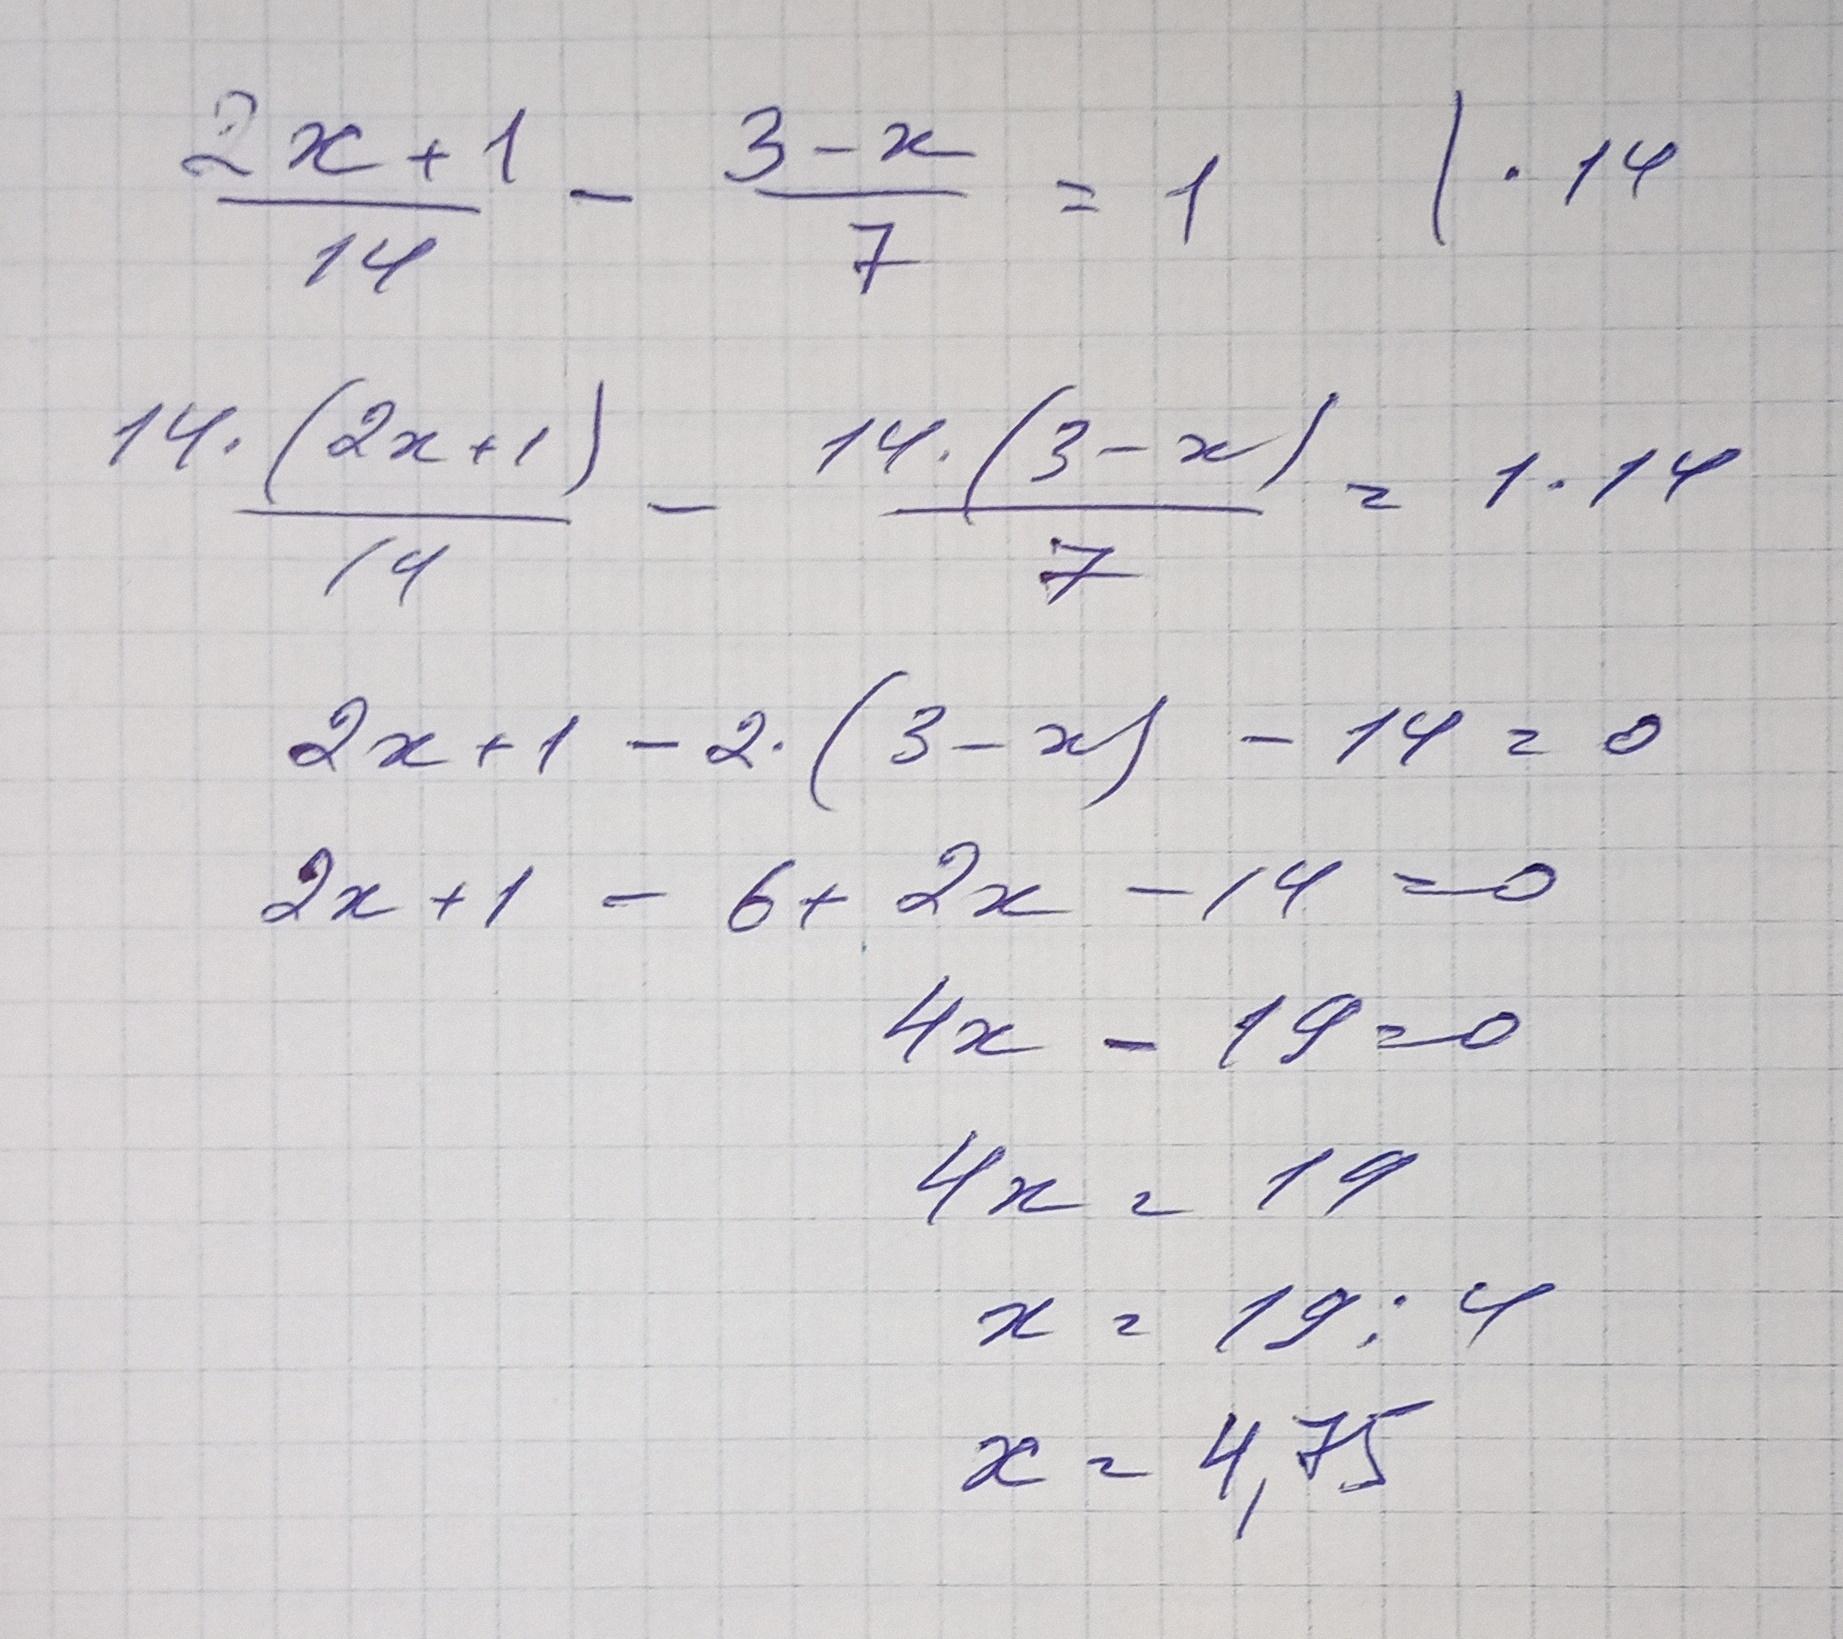 (2x+1)/14 - (3-x)/7 = 1 | · 14
14·(2x+1)/14 - 14·(3-x)/7 = 1·14
2x+1-2·(3-x)-14=0
2x+1-6+2x-14=0
4x-19=0
4x=19
x=19:4
x=4,75